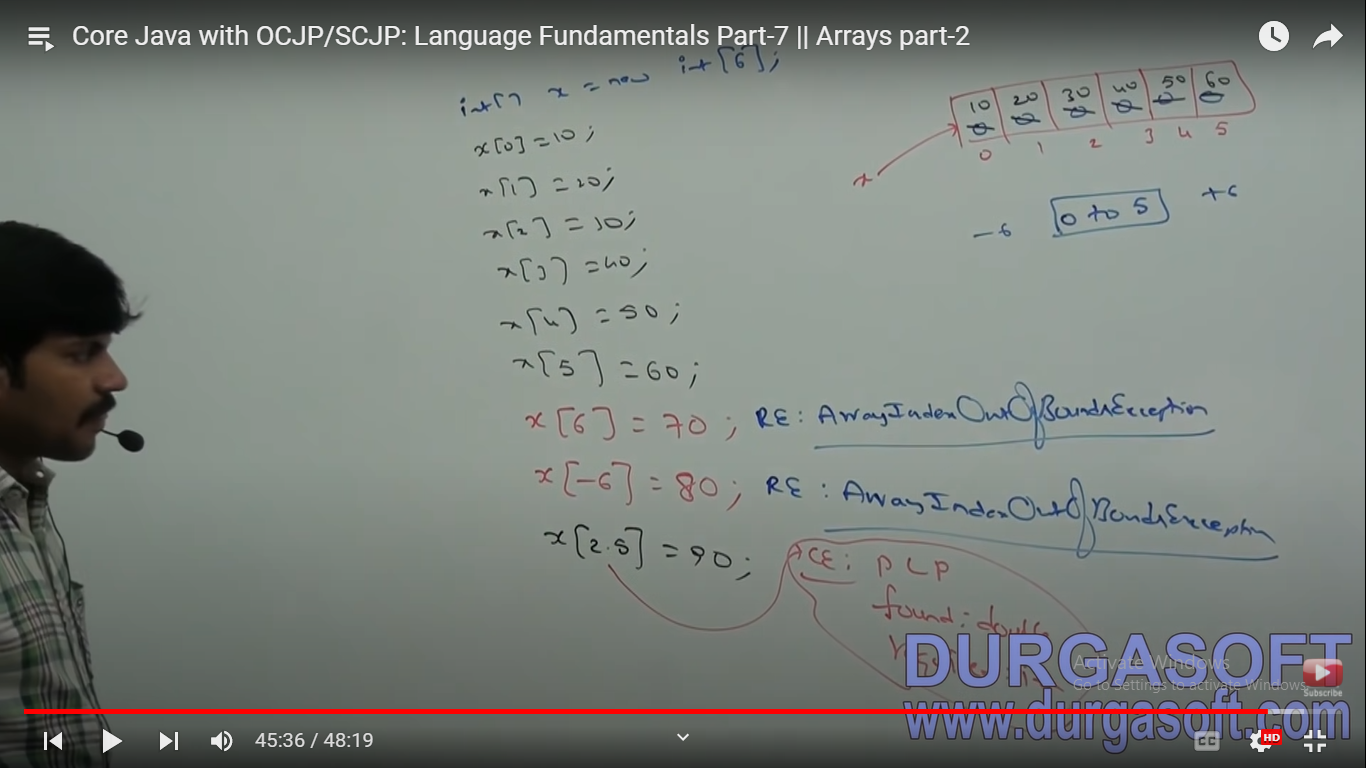 Core Java with OCJP/SCJP: Language Fundamentals Part-7 || Arrays part-2
int[] x = new int[6];
x[0]=10;
x[1]=20;
x[2]=30;
x[3]=40;
x[4]=50;
x[5]=60;
x[6]=70; RE: ArrayIndexOutOfBoundsException
x[-6]=80; RE: ArrayIndexOutOfBoundsException
x[2.5]=90; CE: PLP
found: double
10 20 30 40 50 60
0 0 0 0 0 0
0 1 2 3 4 5
x
-6 0 to 5 +6
DURGASOFT
www.durgasoft.com
Activate Windows
Go to Settings to activate Windows.
Subscribe
45:36 / 48:19
CC HD